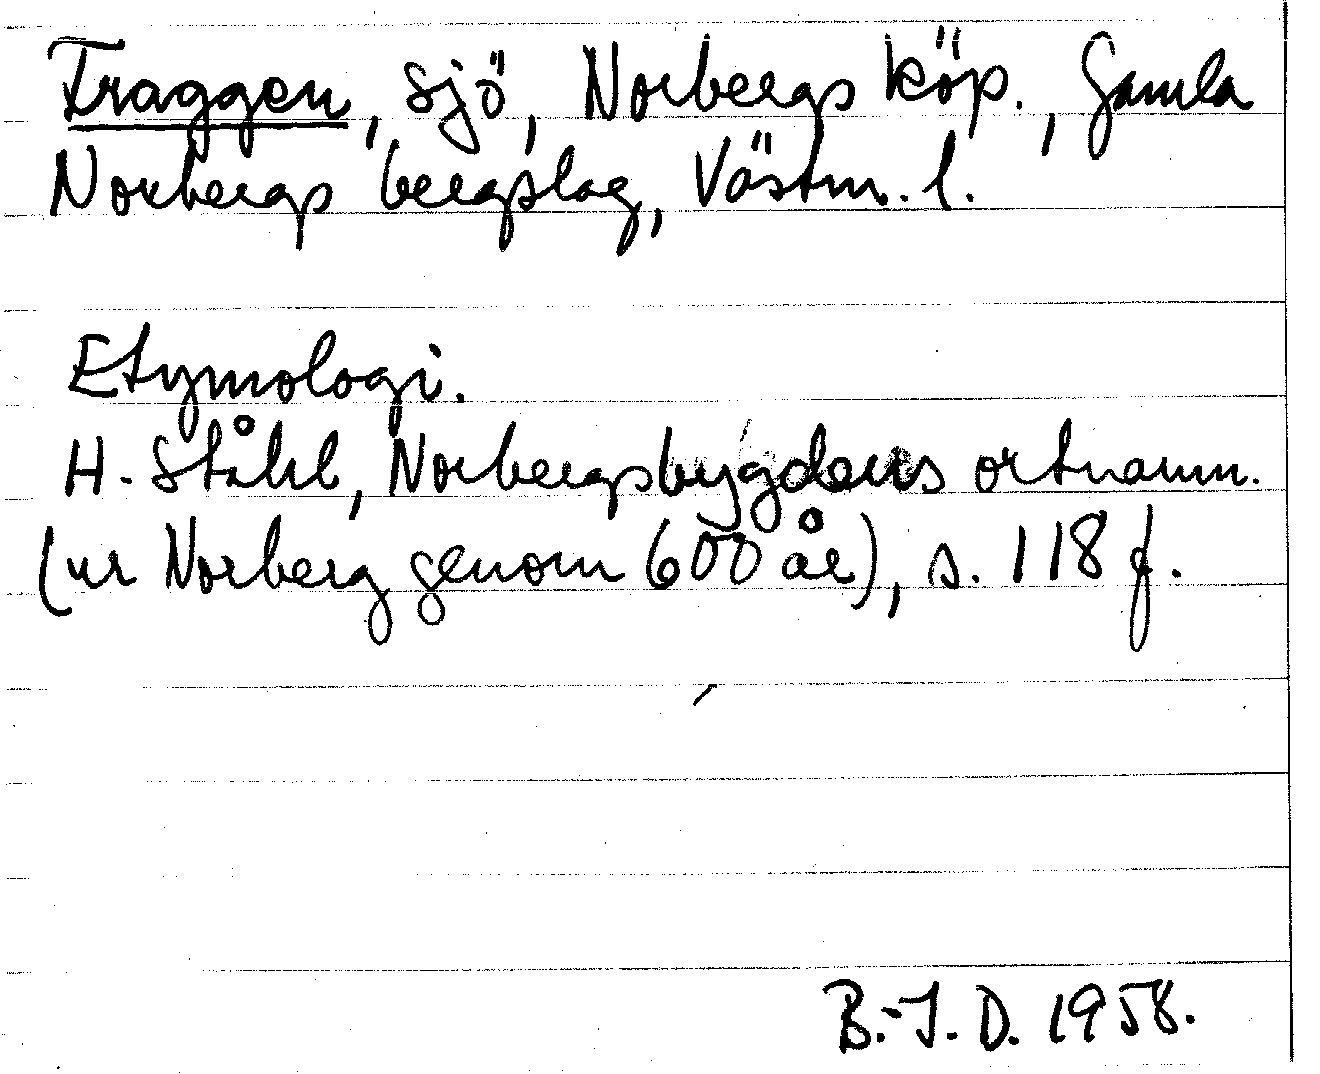 Traggen, sjö, Norbergs köp., Gamla
Norbergs bergslag, Västm. l.
Etymologi.
H. Ståhl, Norbergsbygdens ortnamn.
(ur Norberg genom 600 år), s. 118 f.
B.-J. D. 1958.